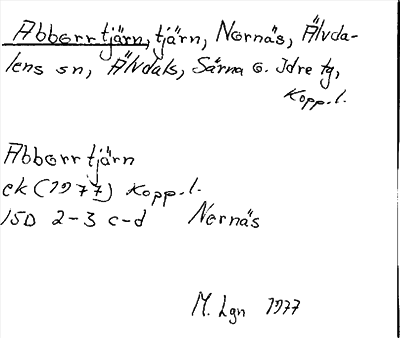 Abborrtjärn, tjärn, Nornäs, Älvda-
lens sn, Älvdals, Särna o. Idre tg,
Kopp.l.
Abborrtjärn
ek (1977) Kopp.l.
15D 2-3 c-d Nornäs
M. Lgn 1977